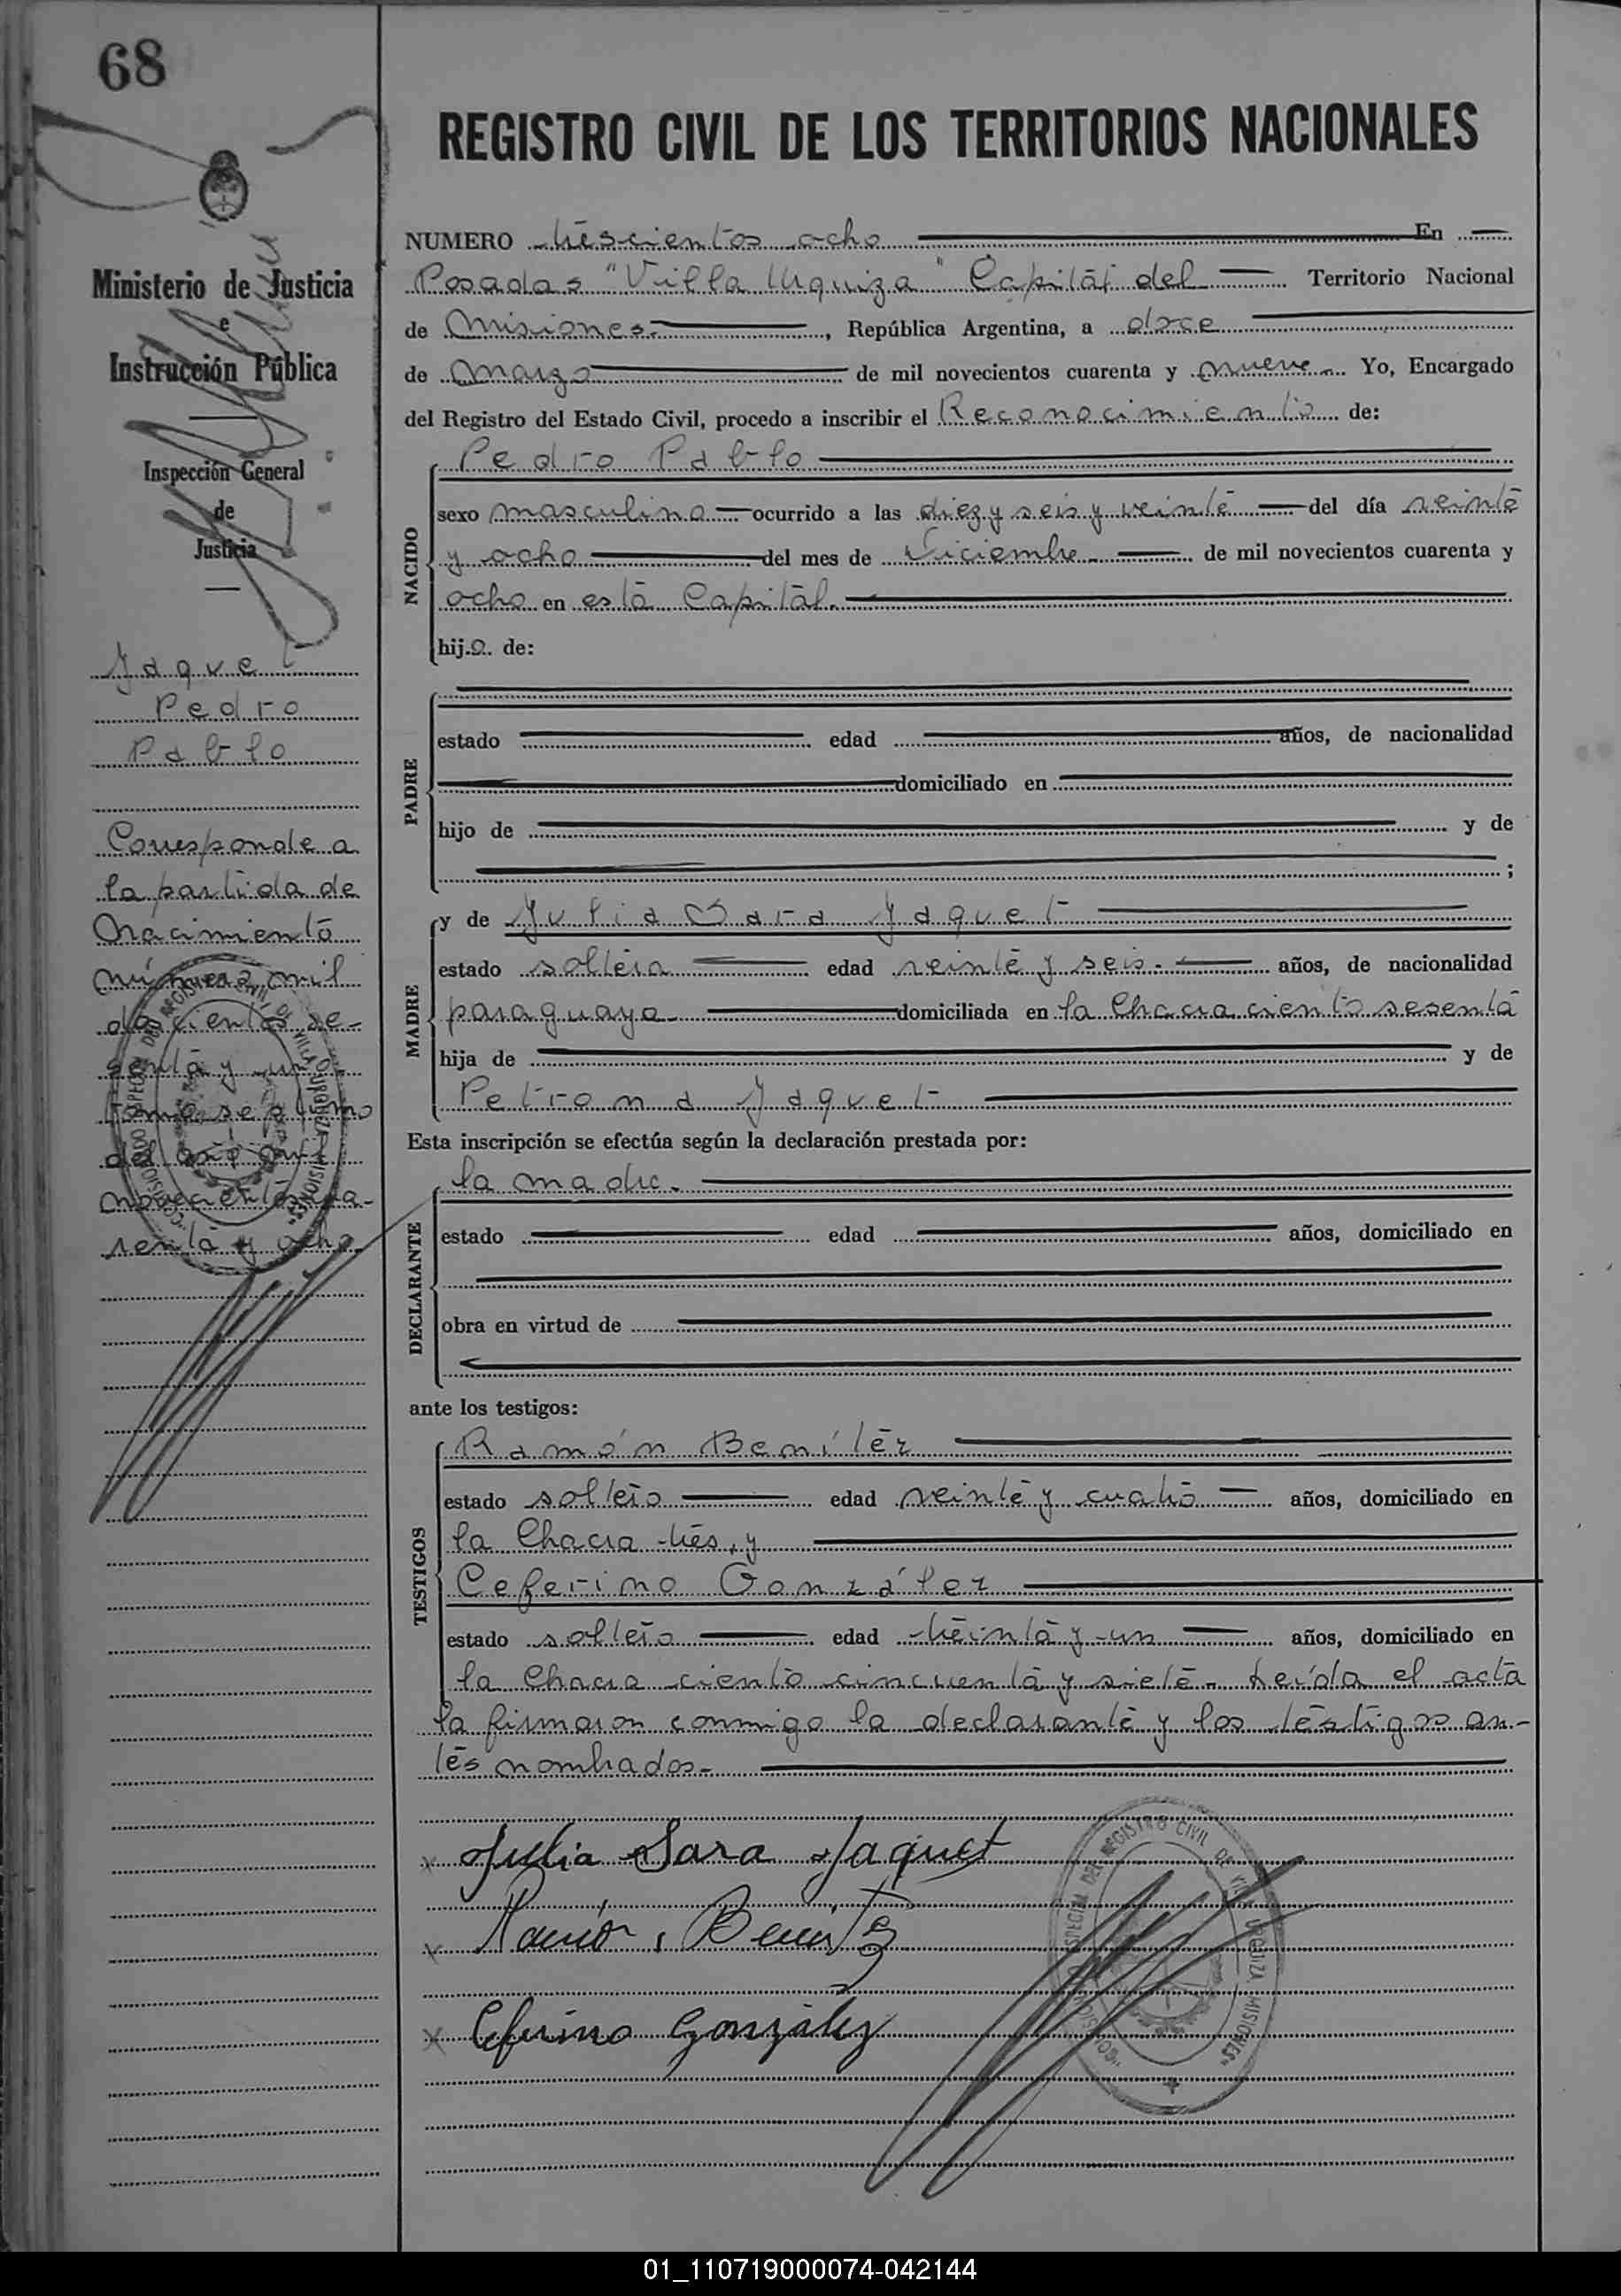 68
REGISTRO CIVIL DE LOS TERRITORIOS NACIONALES
Ministerio de Justicia
e
Instrucción Pública
Inspección General
de
Justicia
Jaquet
Pedro
Pablo
Corresponde a
la partida de
Nacimiento
número mil
doscientos se-
senta y uno
tomo septimo
del año mil
novecientos cua-
renta y ocho
NUMERO trescientos ocho En
Posadas "Villa Urquiza" Capital del Territorio Nacional
de Misiones, República Argentina, a doce
de Marzo de mil novecientos cuarenta y nueve. Yo, Encargado
del Registro del Estado Civil, procedo a inscribir el Reconocimiento de:
NACIDO
Pedro Pablo
sexo masculino ocurrido a las diez y seis y veinte del día veinte
y ocho del mes de Diciembre de mil novecientos cuarenta y
ocho en esta Capital.
hijo de:
PADRE
estado edad años, de nacionalidad
domiciliado en
hijo de y de
;
MADRE
y de Julia Sara Jaquet
estado soltera edad veinte y seis años, de nacionalidad
paraguaya domiciliada en la Chacra ciento sesenta
hija de y de
Petrona Jaquet
Esta inscripción se efectúa según la declaración prestada por:
DECLARANTE
la madre.
estado edad años, domiciliado en
obra en virtud de
ante los testigos:
TESTIGOS
Ramón Benítez
estado soltero edad veinte y cuatro años, domiciliado en
la Chacra tres, y
Ceferino González
estado soltero edad treinta y un años, domiciliado en
la Chacra ciento cincuenta y siete. Leída el acta
la firmaron conmigo la declarante y los testigos an-
tes nombrados.
Julia Sara Jaquet
Ramón Benítez
Ceferino González
REGISTRO CIVIL DE VILLA URQUIZA MISIONES
01_110719000074-042144